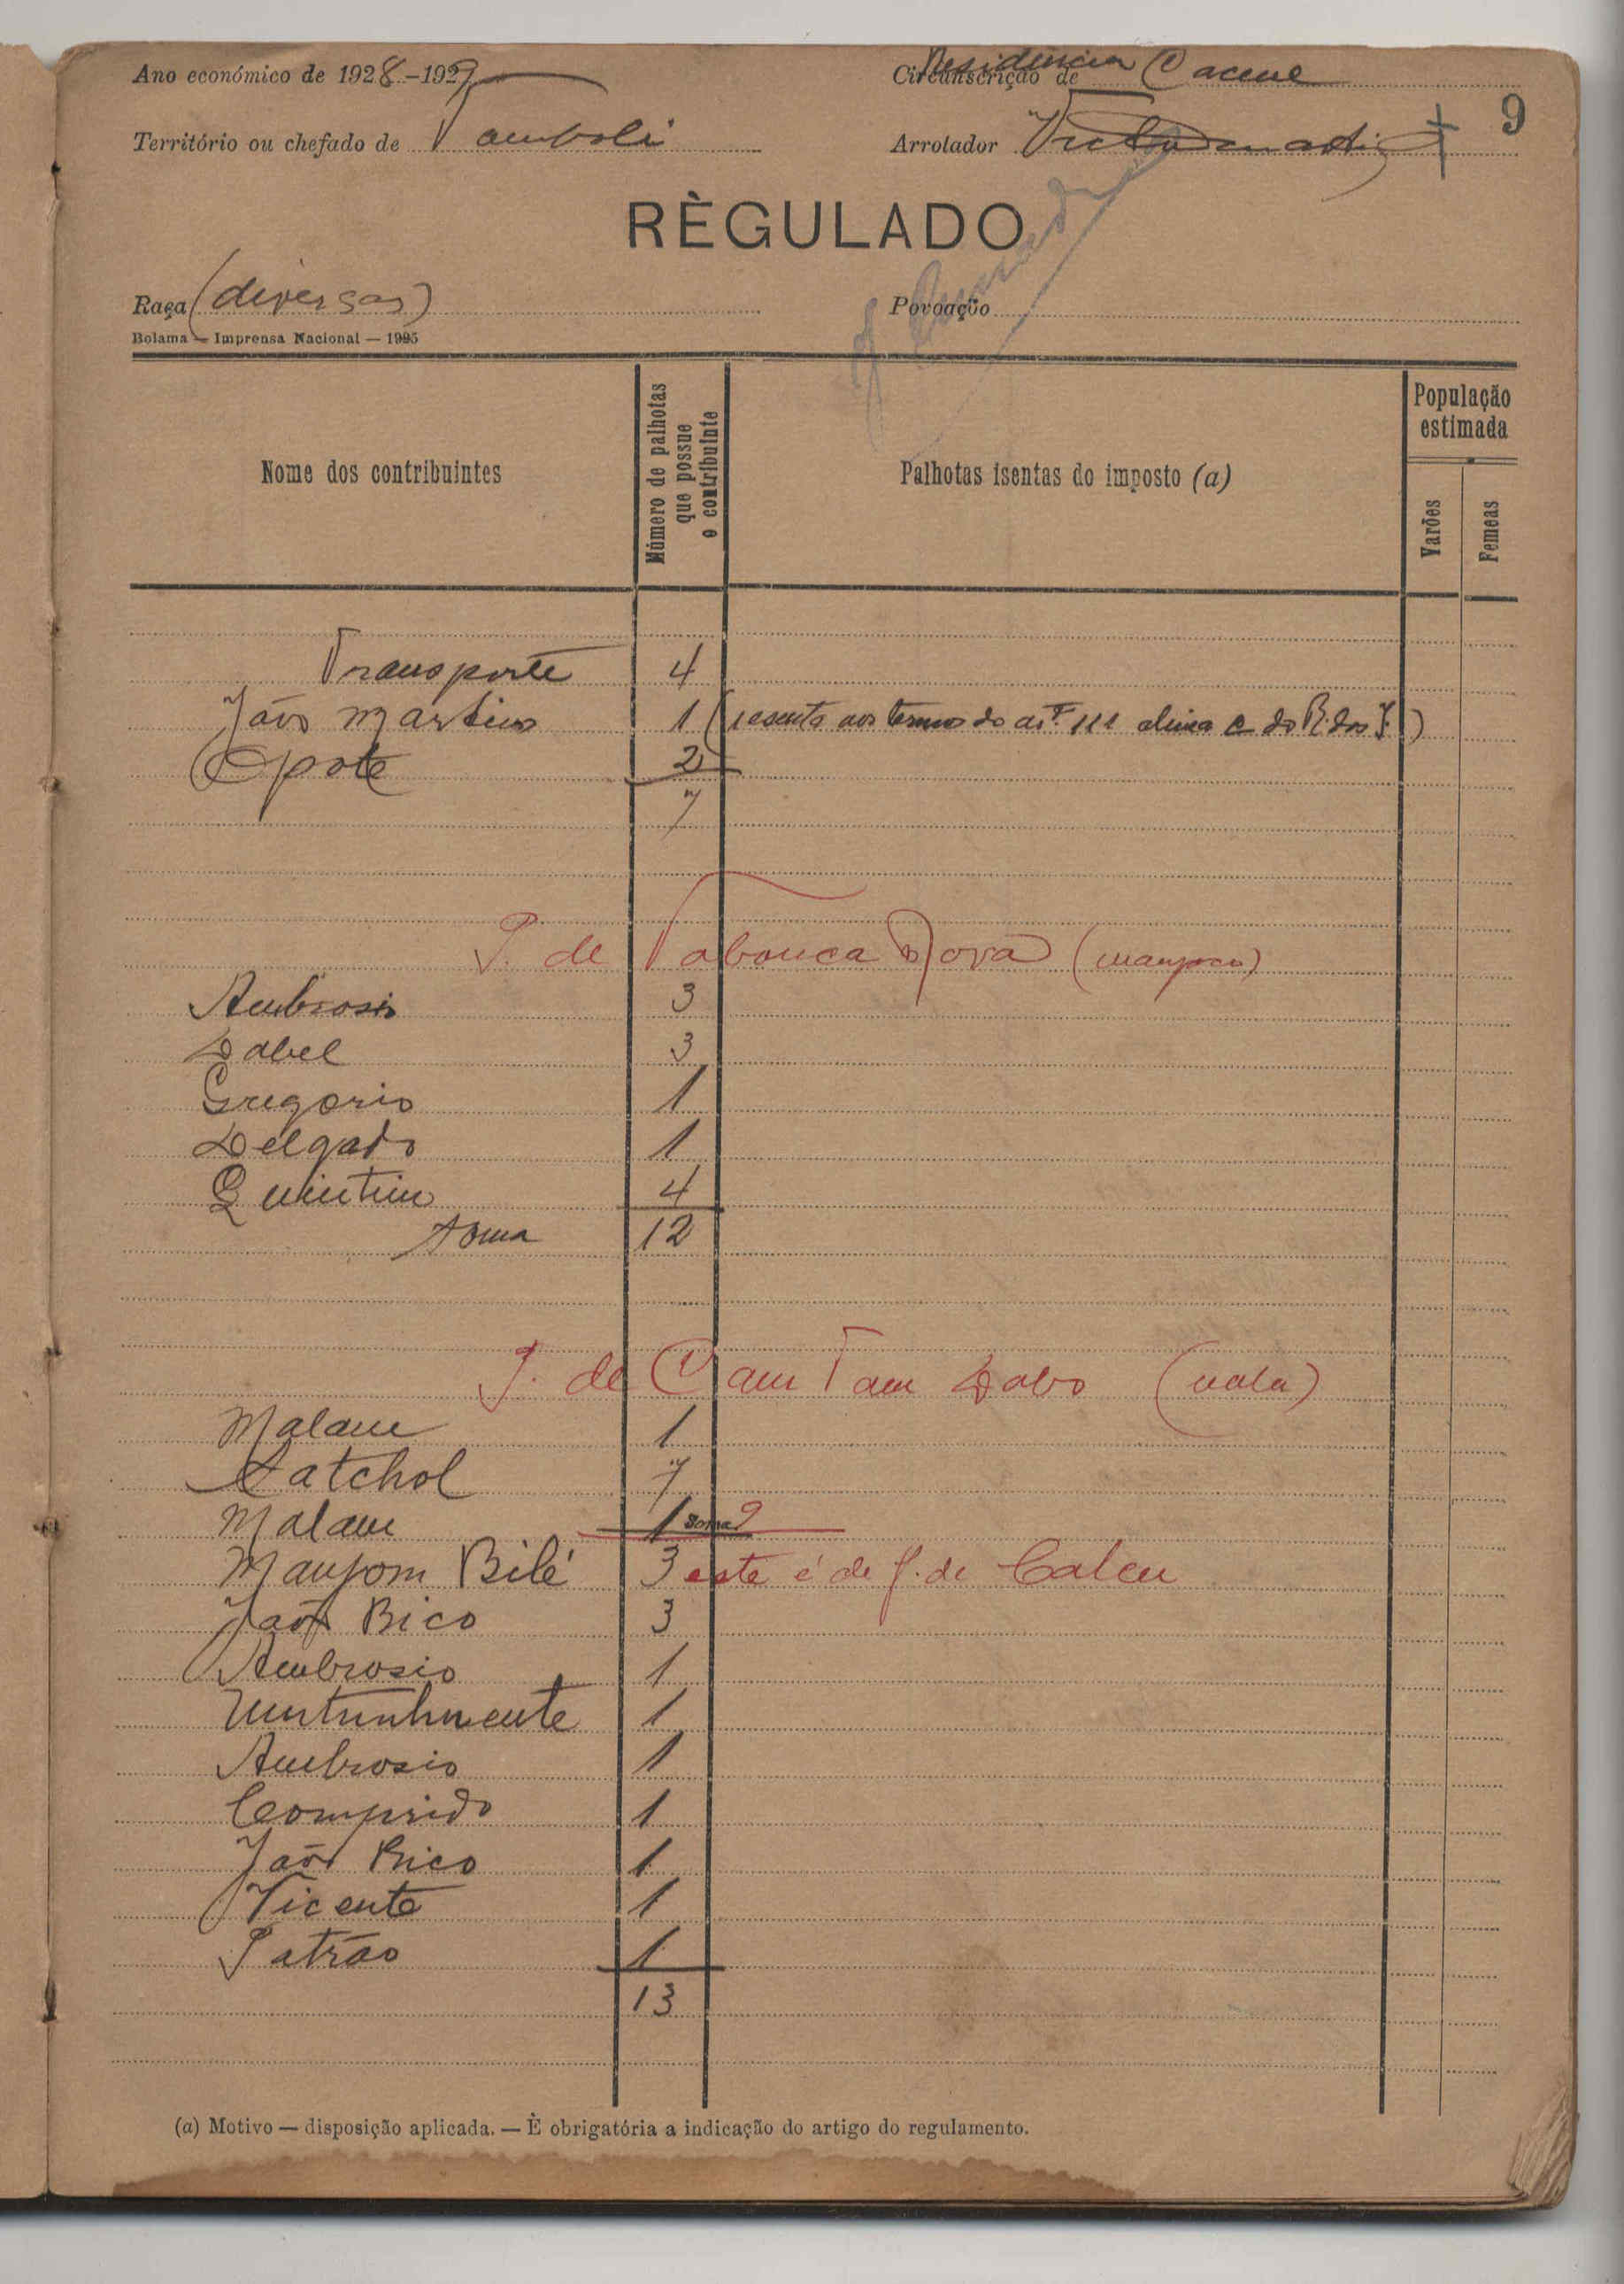 Ano económico de 1928-1929 Residencia Circunscrição de Cacine
Território ou chefado de Tamboli Arrolador
9
RÈGULADO
Raça (diversas) Povoação
Bolama — Imprensa Nacional — 1925
Nome dos contribuintes
Número de palhotas
que possue
o contribuinte
Palhotas isentas do imposto (a)
População
estimada
Varões
Femeas
Transporte 4
João Martins 1 (isento aos termos do artº 111 alinea c do R. dos I.)
Opote 2
7
P. de Tabanca Nova (manjaco)
Ambrosio 3
Dabel 3
Gregorio 1
Delgado 1
Quintino 4
Soma 12
P. de Cam Tam Dabo (nalu)
Malam 1
Latchol 7
Malam 1 soma 9
Manjom Bilé 3 este é de P. de Caleu
João Bico 3
Ambrosio 1
1
Ambrosio 1
Comprido 1
João Bico 1
Vicente 1
Patrão 1
13
(a) Motivo — disposição aplicada. — È obrigatória a indicação do artigo do regulamento.